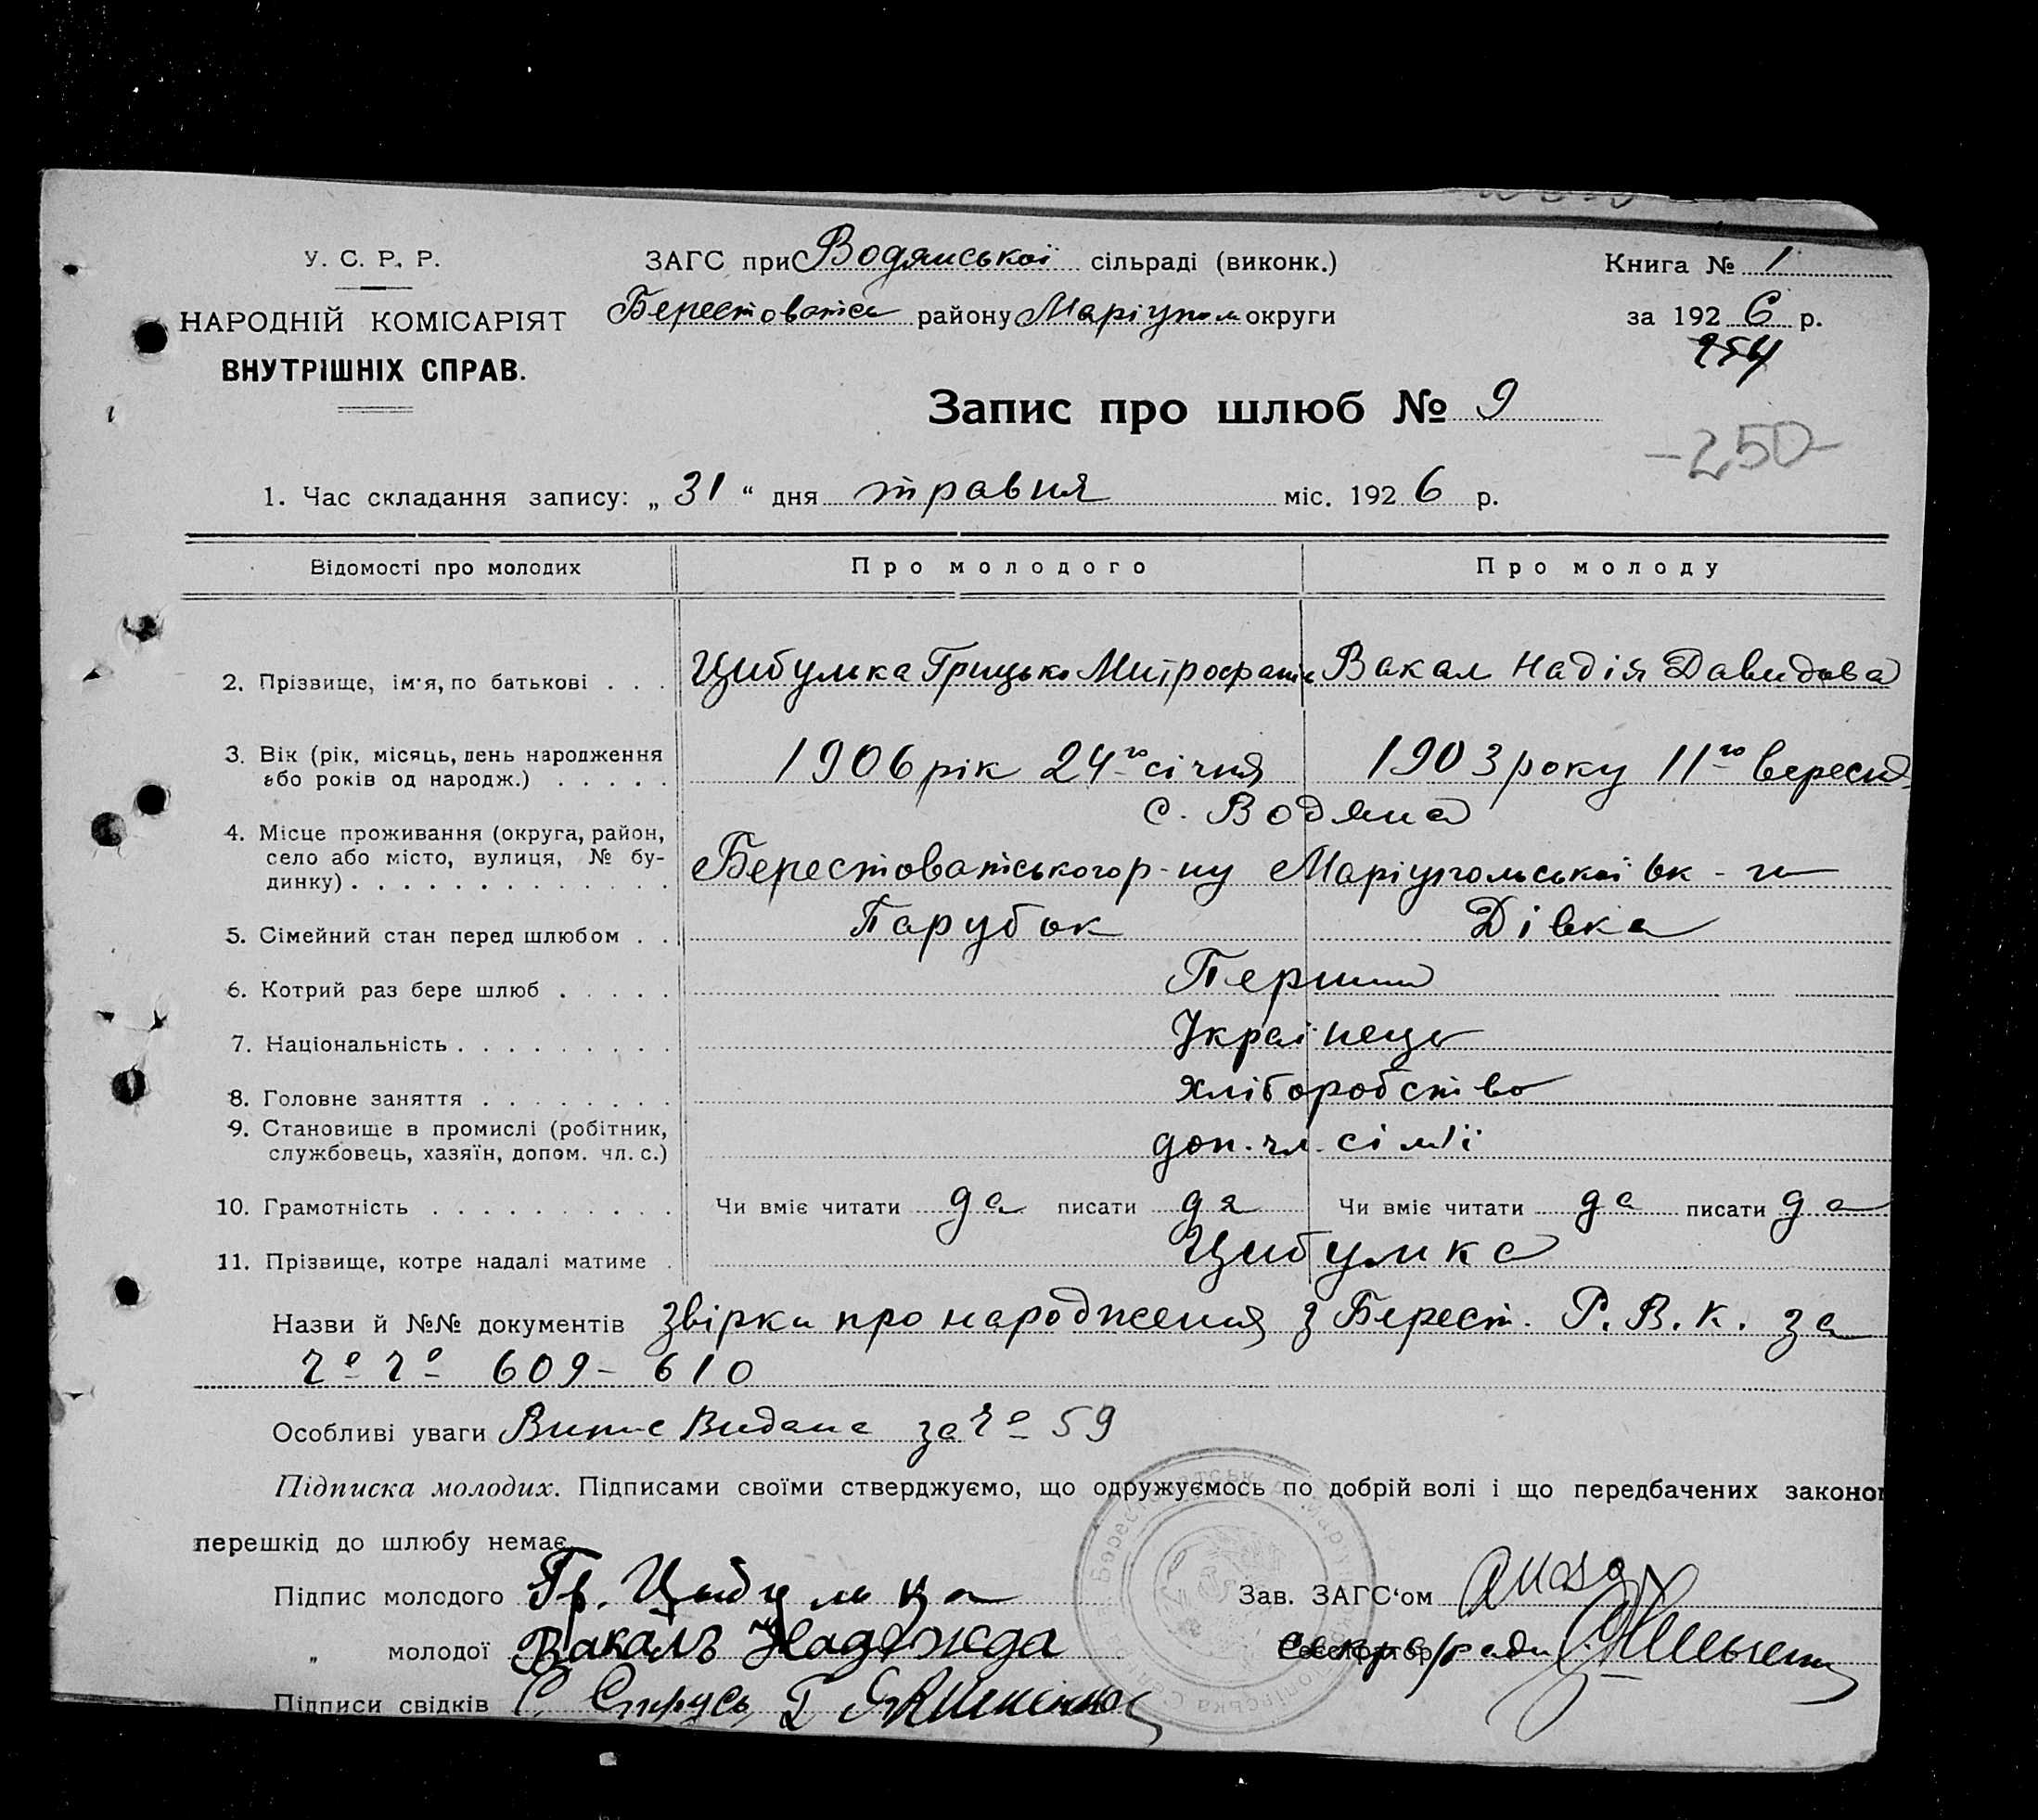 У. С. Р. Р.
НАРОДНІЙ КОМІСАРІЯТ
ВНУТРІШНІХ СПРАВ.
ЗАГС при Водянської сільраді (виконк.)
району Маріупол округи
Книга № 1
за 192 6 р.
254
-250-
Запис про шлюб № 9
1. Час складання запису: „ 31 “ дня травня міс. 192 6 р.
Відомості про молодих Про молодого Про молоду
2. Прізвище, ім'я, по батькові . . . Цибулька Грицько Вакал Надія Давидова
3. Вік (рік, місяць, день народження
або років од народж.) . . . . . 1906 рік 24го січня 1903 року 11го вересня
с. Водяна
4. Місце проживання (округа, район,
село або місто, вулиця, № бу-
динку) . . . . . . . . . . . . . Берестоватського р-ну Маріупольської ок-ги
5. Сімейний стан перед шлюбом . . Парубок Дівка
6. Котрий раз бере шлюб . . . . . Перший
7. Національність . . . . . . . . . Українець
8. Головне заняття . . . . . . . . Хліборобство
9. Становище в промислі (робітник,
службовець, хазяїн, допом. чл. с.) доп. чл. сім'ї
10. Грамотність . . . . . . . . . . . Чи вміє читати да писати да Чи вміє читати да писати да
11. Прізвище, котре надалі матиме . Цибулька
Назви й №№ документів звірки про народження з Берест. Р. В. К. за
№ № 609 - 610
Особливі уваги Випис Видана за № 59
Підписка молодих. Підписами своїми стверджуємо, що одружуємось по добрій волі і що передбачених законо
перешкід до шлюбу немає.
Підпис молодого Гр. Цибулька
Зав. ЗАГС'ом
„ молодої Вакалъ Надежда
секр с/ради
Підписи свідків С. Струсь, Г